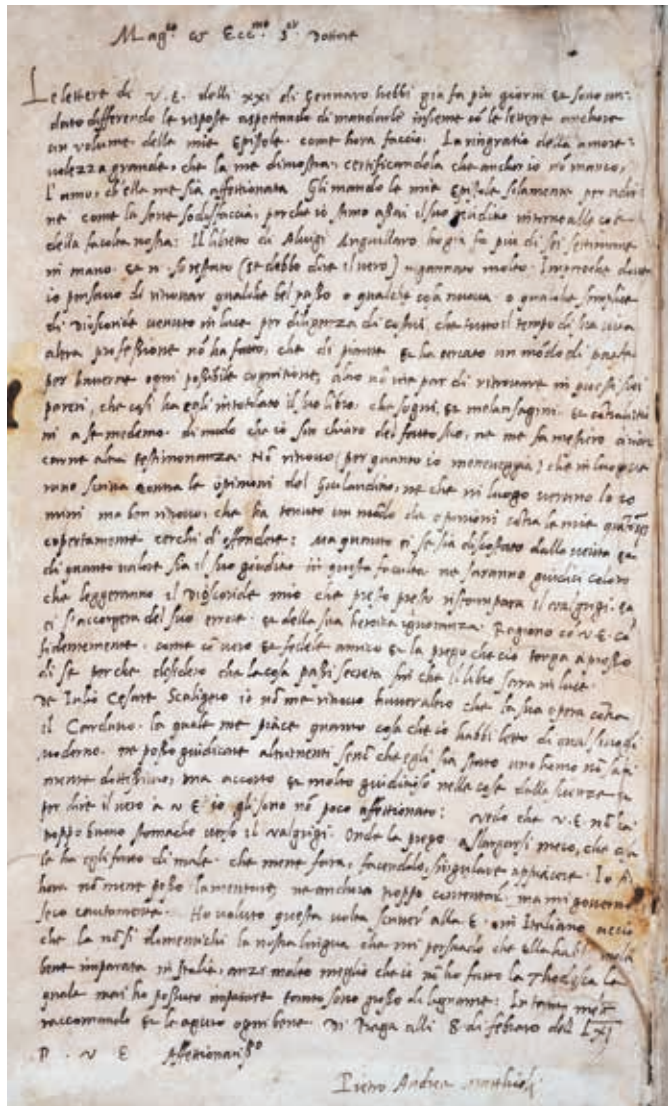 Mag.co et Ecc.mo S.or Dottore
Le lettere di V. E. delli xxi di Gennaro hebbi gia fa più giorni et sono an-
dato differendo le risposte aspettando di mandarle insieme cõ le lettere anchora
un volume delle mie Epistole. come hora faccio. La ringratio della amore-
volezza grande, che la me dimostra, certificandola che anchor io nõ manco,
l'amo, ch'ella me sia affettionata Gli mando le mie Epistole solamente per
ne come la sorte sodisfaccia, perche io stimo assai il suo giuditio intorno alle cose
della facolta nostra: Il libretto di Aluigi Anguillaro ho gia fa piu di sei settimane
in mano. et n. so restato (se debbo dire il vero) ingannato molto. Imperoche dove
io pensavo di ritrovar qualche bel passo o qualche cosa nuova. o qualche semplice
di Dioscoride venuto in luce per diligenza di costui, che tutto il tempo di sua vita
altra professione nõ ha fatto, che di piante et ha cercato un mõdo di paesi
per haverne ogni possibile cognitione, altro nõ mi par di ritrovare in questi suoi
pareri, che cosi ha egli intitolato il suo libro. che sogni, et melansagini. et
ni a se medemo. di modo che io son chiaro del fatto suo, ne me fa mestiero
carne altra testimonanza. Nõ ritrovo (per quanto io) che in luogo ve-
runo scriva contra le opinioni del Guilandino, ne che in luogo veruno lo no
mini ma ben ritrovo, che ha tenuto un mõdo de opinioni cõtra la mie
copertamente cerchi d'offendere: Ma quanto ei se sia discostato dalla verita et
di quanto valore sia il suo giuditio in questa faculta ne saranno giudici coloro
che leggeranno il Dioscoride mio che presto presto ristampara il valgrigi. et
ei s'accorgera del suo errore. et della sua ignoranza. Ragiono cõ V. E. cõ
fidentemente. come cõ vero et fedele amico et la prego che cio tenga apresso
di se perche desidero che la cosa passi secreta fin che il libro sarra in luce.
De Iulio Cesare Scaligero io nõ me ritrovo altro che la sua opera cõtra
il Cardano. la quale me piace quanto cosa che io habbi letto di qual si vogli
moderno. ne posso giudicare altrimenti senõ che egli sia stato uno homo nõ sola
mente dottissimo, ma accorto et molto giuditioso nelle cose della scienza et
per dire il vero a V E io gli sono nõ poco affettionato: Vedo che V. E. nõ ha
troppo buono stomacho verso il valgrigi. Onde la prego allargarsi meco, che cosa
le ha egli fatto di male. che mene fara, facendolo, singulare appiacere. Io fi
hora nõ mene posso lamentare, ne anchora troppo contentar. ma mi governo
seco cautamente. Ho voluto questa volta scriver alla E. in Italiano accio
che la nõ si dimentichi la nostra lingua che mi persuado che ella habbi molto
bene imparata in Italia, anzi molto meglio che io nõ ho fatto la Thodesca la
quale mai ho possuto imparare tanto sono grosso di legname: In tanto me le
raccomando et le aguro ogni bene. Di Praga alli 8 di febraro del LXI
D. V E Affettionatiss.o
Pietro Andrea Matthioli